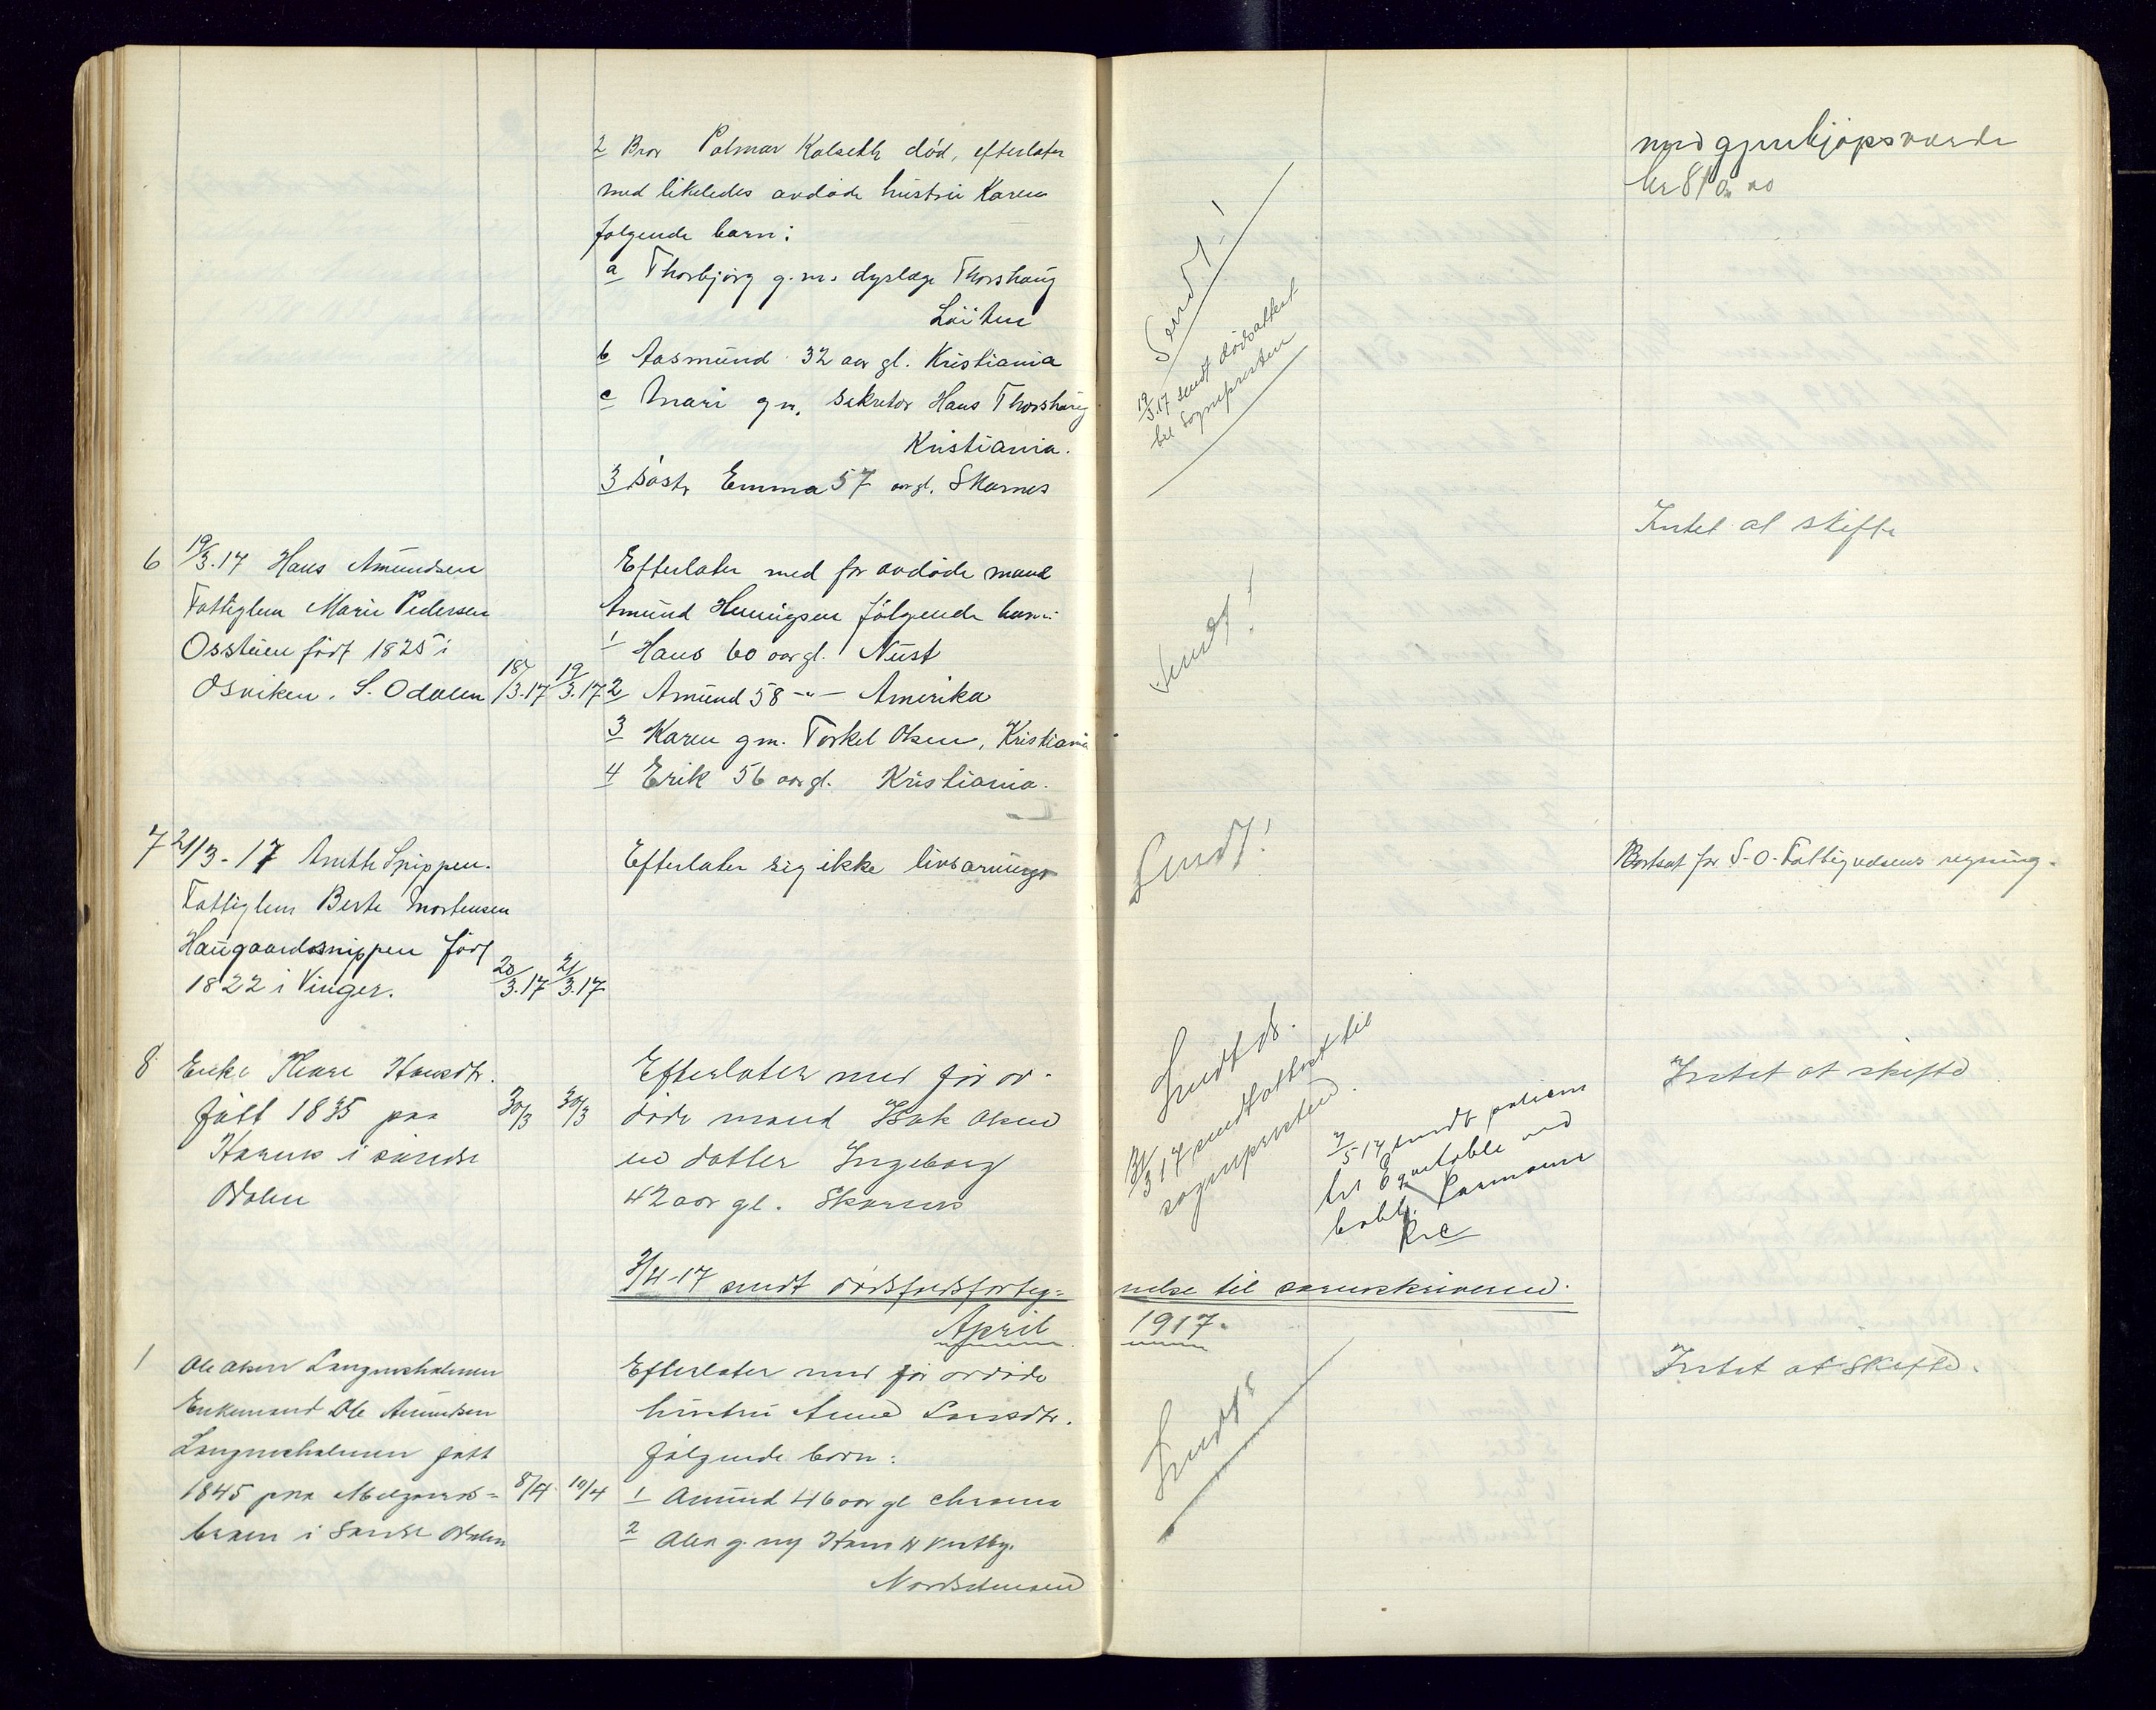 2 Bror Palmar Kalseth død, efterlater
med likeledes avdøde hustru Karen
følgende barn:
a Thorbjørg g.m. dyrlæge Thorshaug
Løiten
b Aasmund 32 aar gl. Kristiania
c Mari gm. sekretær Hans Thorshaug
Kristiania.
3 Søster Emma 57 aar gl. Skarnes
Sendt!
19/3.17 sendt dødsattest
til sognepresten
med gjenkjøpsværdi
kr 810,00
6 19/3.17 Hans Amundsen
Fattiglem Marie Pedersen
Osstuen født 1825 i
Osviken. S. Odalen 18/3.17 19/3.17
Efterlater med før avdøde mand
Amund Henrigsen følgende barn:
1 Hans 60 aar gl. Nust
2 Amund 58 -"- Amerika
3 Karen gm. Torkel Olsen, Kristiania
4 Erik 56 aar gl. Kristiania.
Sendt!
Intet at skifte
7 21/3-17 Anette Snippen.
Fattiglem Berte Mortensen
Haugaardssnippen født
1822 i Vinger. 20/3.17 21/3.17
Efterlater sig ikke livsarvinger
Sendt!
Bortsat for S-O. Fattigvæsens regning.
8 Enke Kari Hansdtr.
født 1835 paa 30/3 30/3
i søndre
Odalen
Efterlater med før av-
døde mand Isak Olsen
en datter Ingeborg
42 aar gl. Skarnes
Sendt
31/3 17 sendt attest til
sognepresten.
7/5 17 sendt polisen
til Eqvitable ved
Paamann
Kr.a
Intet at skifte
3/4-17 sendt dødsfaldsforteg-
nelse til sorenskriveren.
April 1917.
1 Ole Olsen Langnesholmen
Enkemand Ole Amundsen
Langnesholmen født
1845 paa 8/4 10/4
i Søndre Odalen
Efterlater med før avdøde
hustru Anne Larsdtr.
følgende børn:
1 Amund 46 aar gl
2 g. m
Nordstrand
Sendt
Intet at skifte.